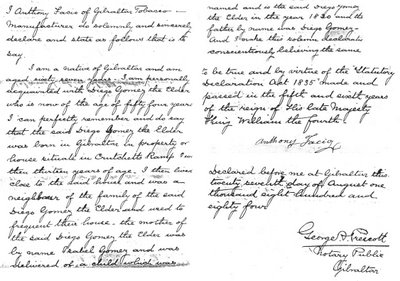 I Anthony Facio of Gibraltar Tobacco
Manufacturer do solemnly and sincerely
declare and state as follows that is to
say.
I am a native of Gibraltar and am
aged sixty seven years. I am personally
acquainted with Diego Gomez the Elder
who is now of the age of fifty four years
I can perfectly remember and do say
that the said Diego Gomez the Elder
was born in Gibraltar in property or
house situate in Crutchetts Ramp I was
then thirteen years of age. I then lived
close to the said house and was a
neighbour of the family of the said
Diego Gomez the Elder and used to
frequent their house. the mother of
the said Diego Gomez the Elder was
by name Isabel Gomez and was
delivered of a child which was
named and is the said Diego Gomez
the Elder in the year 1830 and his
father by name was Diego Gomez
And I make this solemn declaration
conscientiously believing the same
to be true and by virtue of the "Statutory
Declaration Act 1835" made and
passed in the fifth and sixth years
of the reign of His late Majesty
King William the fourth.
Anthony Facio
Declared before me at Gibraltar this
twenty seventh day of August one
thousand eight hundred and
eighty four
George F. Prescott
Notary Public
Gibraltar